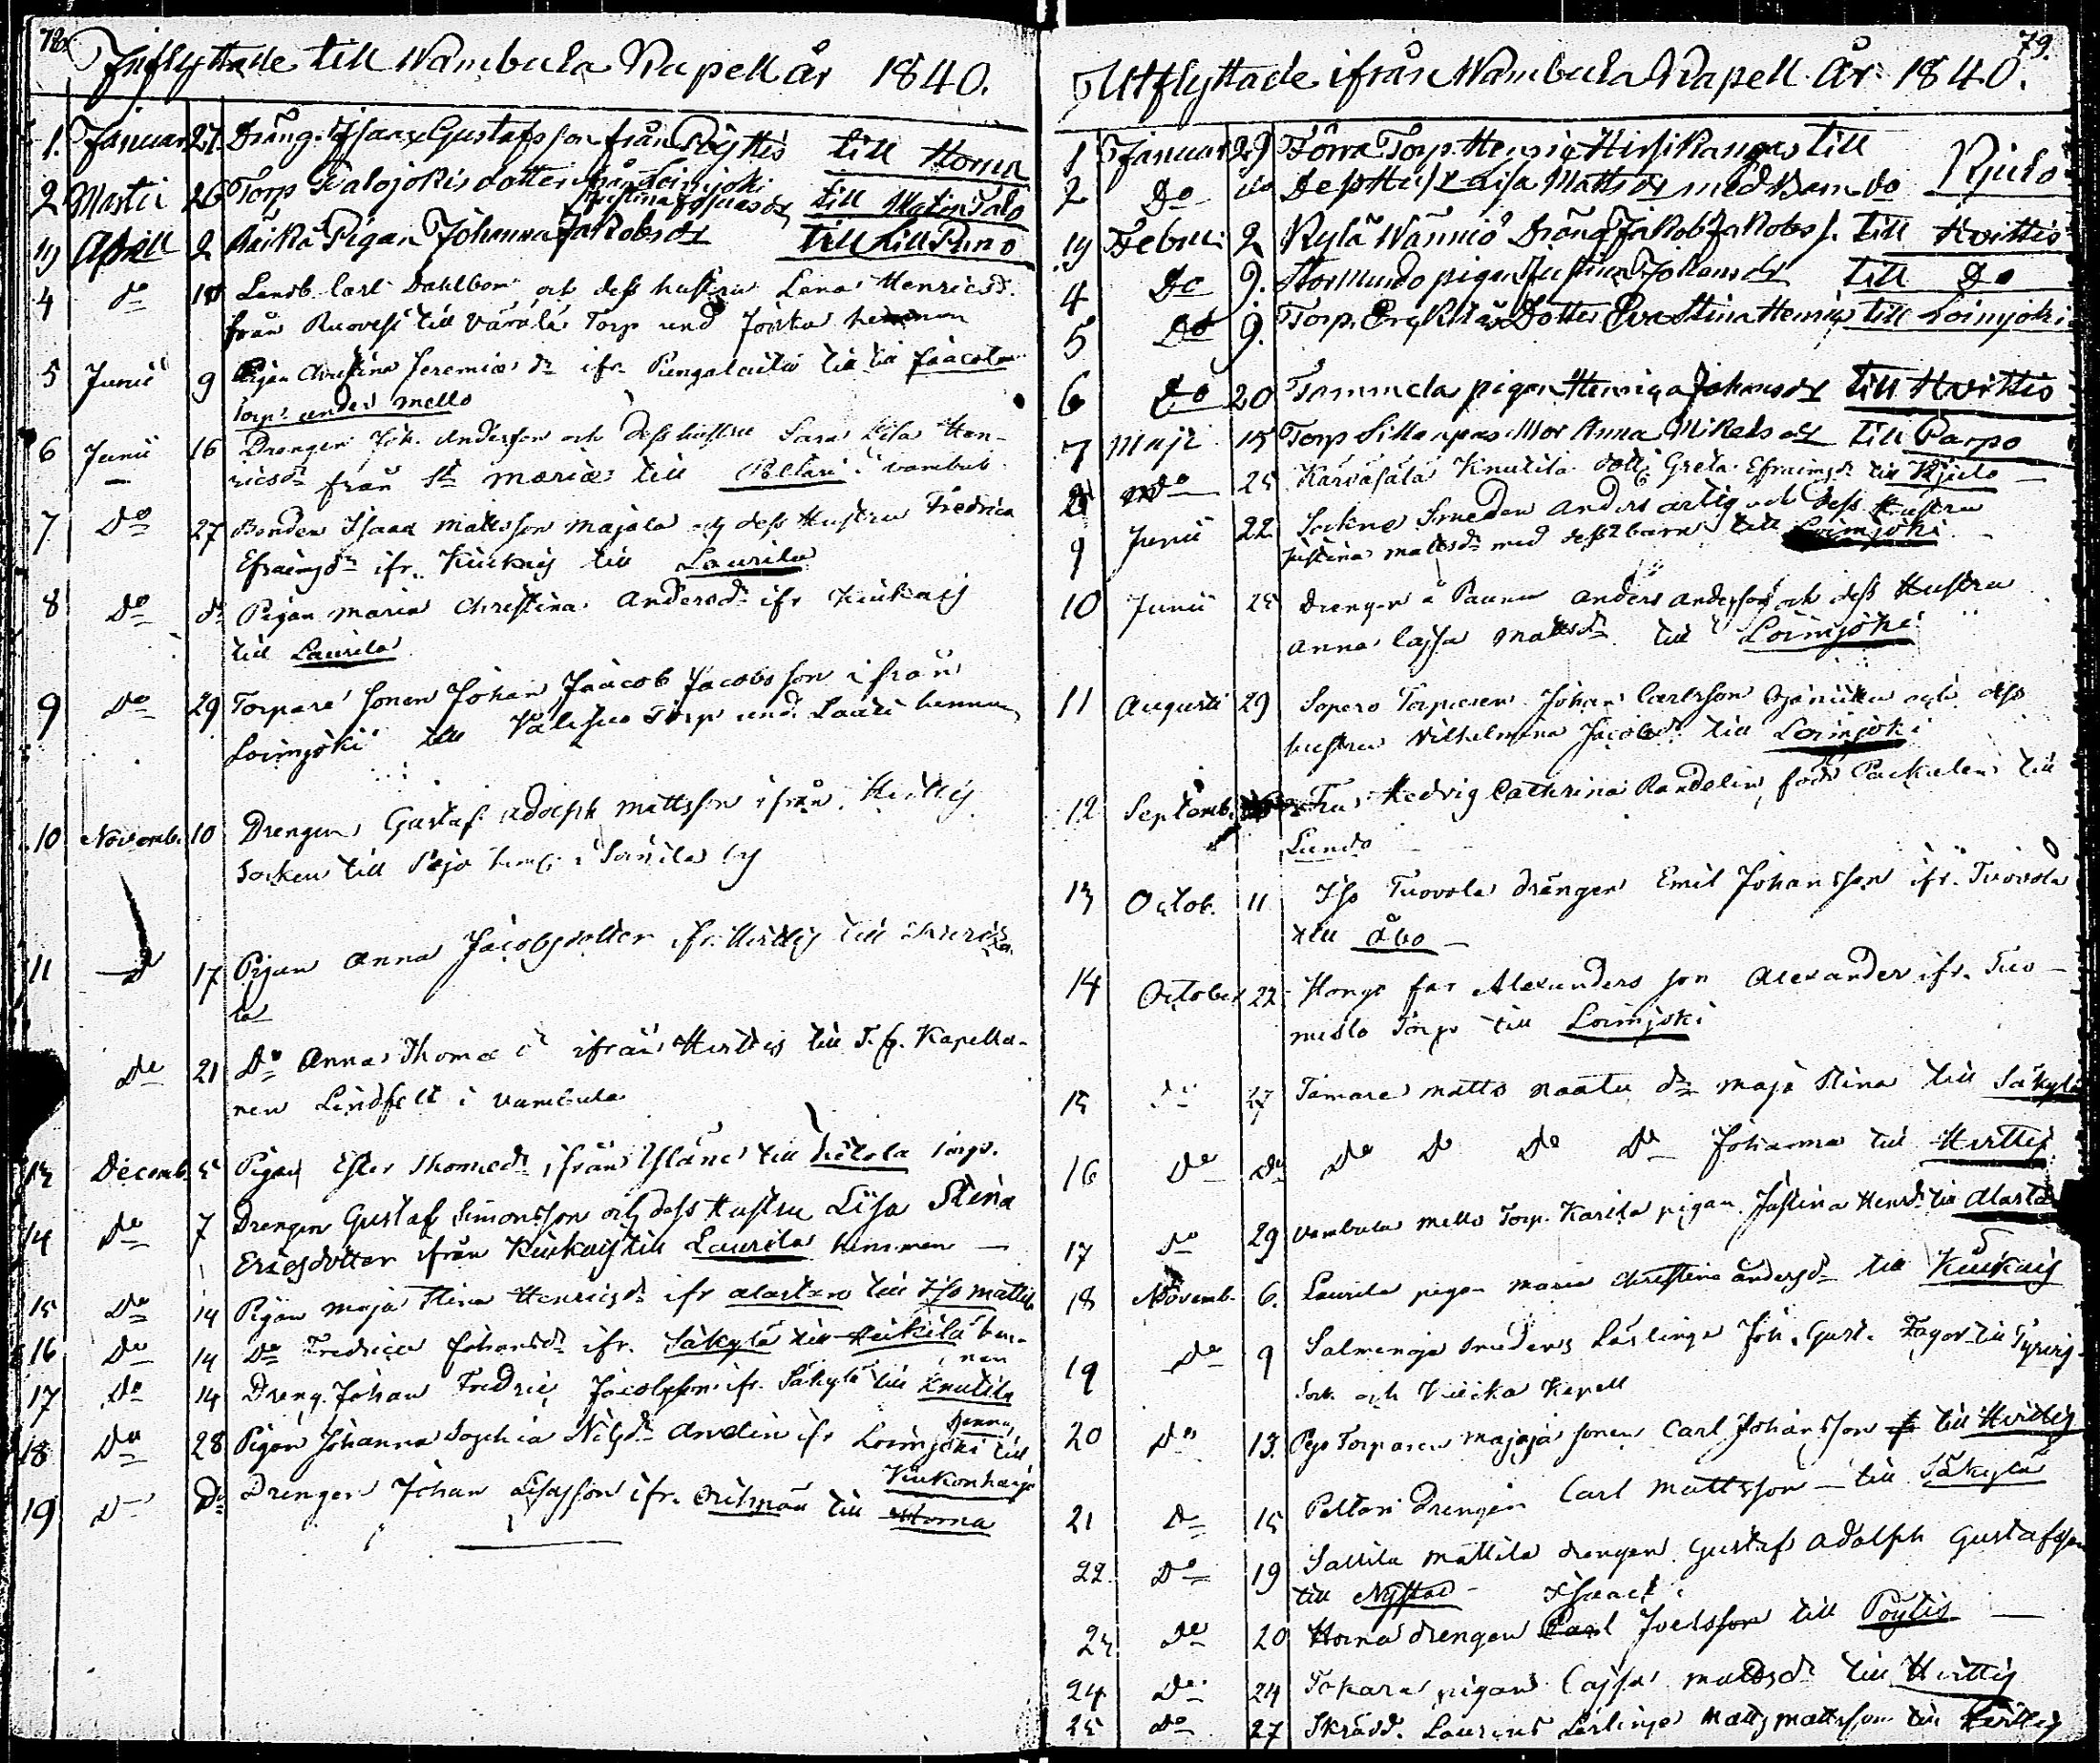 78.
Inflyttade till Wambula Kapell år 1840.
1. Januar 27. Dräng Isaac Gustafsson från Pöyttis till Horna
2 Martii 26 Torp Walojokis dotter från Loimjoki
Justina Josuasdr till Matin Talo
3 Aprill 2 Räikä Pigan Johanna Jakobsdr till Lill Puno
4 do 18 Landb. Carl Dahlbom och dess hustru Lena Henricsd.
från Ruovesi till Värälä Torp und Jonka hemman
5 Junii 9 Pigan Christina Jeremiæ dr ifr. Pungalaitio till
Torp under Mello
6 Junii 16 Drengen Joh. Andersson och dess hustru Sara Lisa Hen-
ricsdr från St Mariæ till Peltari i Vambul.
7 Do 27 Bonden Isaac Mattsson Majala och dess Hustru Fredrica
Efraimsdr ifr. Kiukais till Laurila
8 Do do Pigan Maria Christina Andersdr ifr Kiukais
till Laurila
9 Do 29 Torpare sonen Johan Jaacob Jacobsson ifrån
Loimjoki till Välisuo Torp und. Lauri hemman
10 Novemb. 10 Drengen Gustaf Adolph Mattsson ifrån Hvittis
Socken till Pejo hem. i Sarvila by
11 D 17 Pigan Anna Jacobsdotter ifr. Hvittis till
la
Do 21 Do Anna Thomæ dr ifrån Hvittis till T.f. Kapella-
nen Lindfelt i Vambula
13 Decemb. 5 Pigan Ester Thomædr ifrån Yläne till Kétola Torp.
14 Do 7 Drengen Gustaf Simonsson och dess Hustru Lisa Stina
Ericsdotter ifrån Kiukais till Laurila hemman
15 Do 14 Pigan Maja Stina Henricsdr ifr Alastaro till Iso Mattila
16 Do 14 Do Fredrica Johansdr ifr. Säkylä till Heikilä hem-
man
17 Do 14 Dreng. Johan Fredric Jacobsson ifr. Säkylä till Knutila
18 Do 28 Pigan Johanna Sophia Nilsdr Avelin ifr Loimjoki till
Kiukonharju
19 D Do Drengen Johan Isacsson ifr. Orihpää till Horna
79.
Utflyttade ifrån Wambula Kapell År 1840.
1 Januar 29 Förra Torp. Henric Hirsikangas till
2 Do do Dess Hust Lisa Mattsdr med Barn do Kjulo
3 Februi 2 Kylä Wänniö Dräng Jakob Jakobss. till Hvittis
4 Do 9. Stormundo pigan Justina Johansdr till Do
5 Do 9. Torp. Dotter Eva Stina Henrics till Loimjoki
6 Do 20 Tommila pigan Henrica Johansdr till Hvittis
7 Maji 15 Torp Sillanpää Mor Anna Mikelsdr till Parpo
8 Do 25 Karvasala Knutila dott. Greta Efraimsdr till Kjulo
9 Junii 22 Sockne Smeden Anders Artig och dess Hustru
Justina Mattsdr med dess 2 barn till Loimjoki
10 Junii 25 Drengen å Paunu Anders Andersson och dess Hustru
Anna Cajsa Mattsdr till Loimjoki
11 Augusti 29 Sopero Torparen Johan Carlsson och dess
hustru Vilhelmina Jacobsdr till Loimjoki
12 Septemb. Fru Hedvig Cathrina Randelin född Packalen till
Lundo
13 Octob. 11 Iso Tuovola drängen Emil Johansson ifr. Tuovola
till Åbo
14 October 22 Hongo far Alexanders son Alexander ifr. Tuo-
misto Torp till Loimjoki
15 Do 27 Tamare Matts Naatu dr Maja Stina till Säkylä
16 Do Do Do D Do Do Johanna till Hvittis
17 Do 29 Vambula Mello Torp. Karila pigan Justina Henrsdr till Alastaro
18 Novemb. 6. Laurila pigan Maria Christina Andersdr till Kiukais
19 Do 9 Salmenoja smedens Lärlinge Joh. Gust. Fagor till Tyrvis
Sock. och Kiikka Kapell
20 Do 13. Pejo Torparen Majoja sonen Carl Johansson till Hvittis
21 Do 15 Peltari Drengen Carl Mattsson till Säkylä
22. Do 19 Sallila Mattila drengen Gustaf Adolph Gustafsson
till Nystad
Isaack
23 Do 20 Horna drengen Carl Joelsson till Pöytis
24 Do 24 Tokara pigan Cajsa Mattsdr till Hvittis
25 do 27 Skrädd. Laurens Lärlinge Matts Mattsson till Hvittis